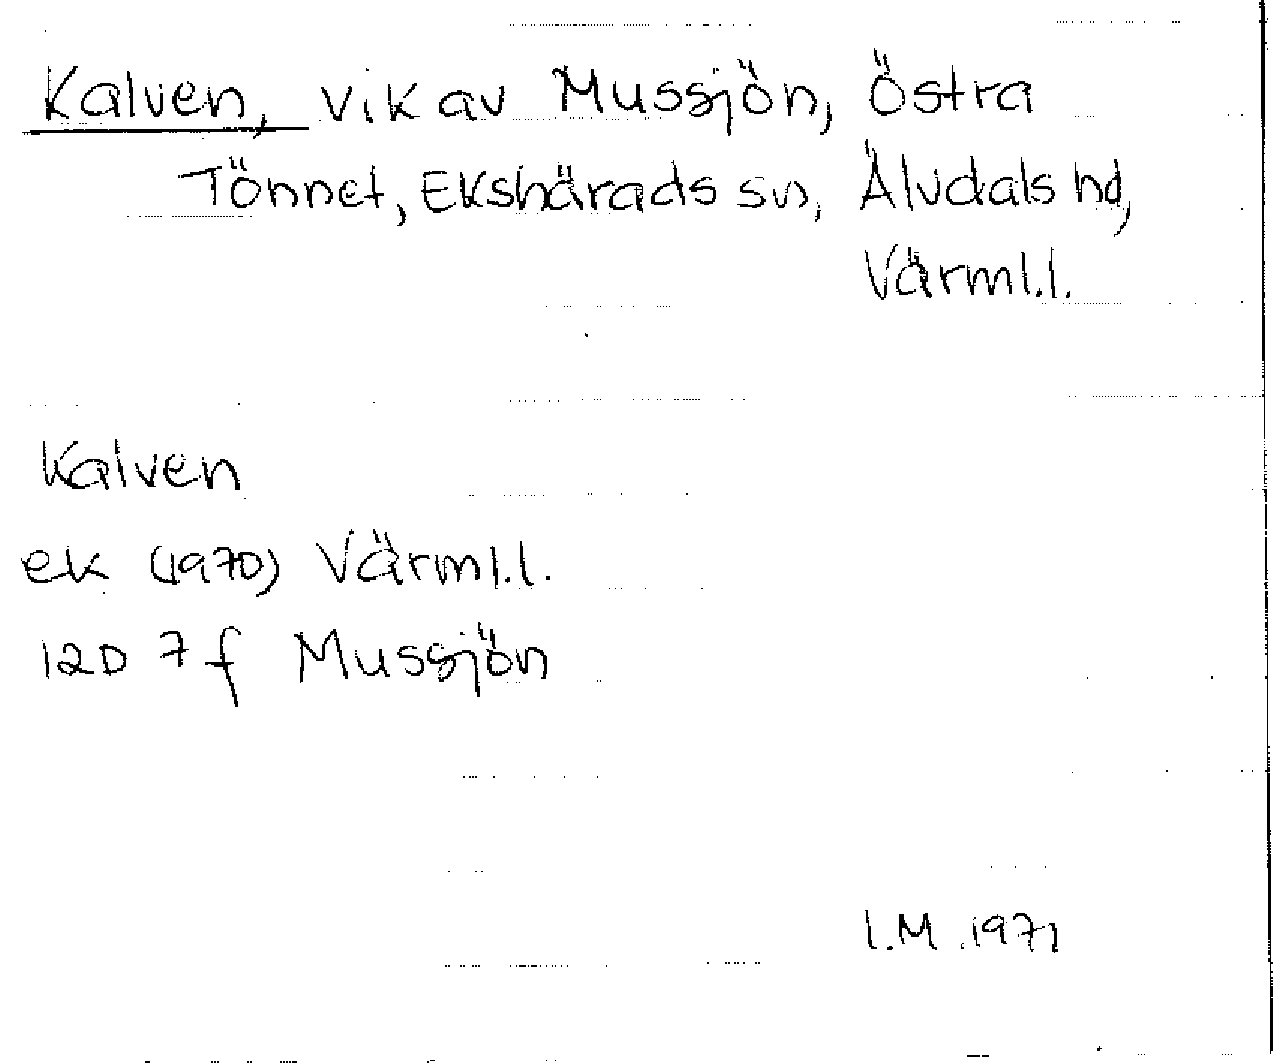 Kalven, vik av Mussjön, Östra
Tönnet, Ekshärads sn, Älvdals hd,
Värml.l.
Kalven
ek (1970) Värml.l.
12D 7f Mussjön
I.M. 1971